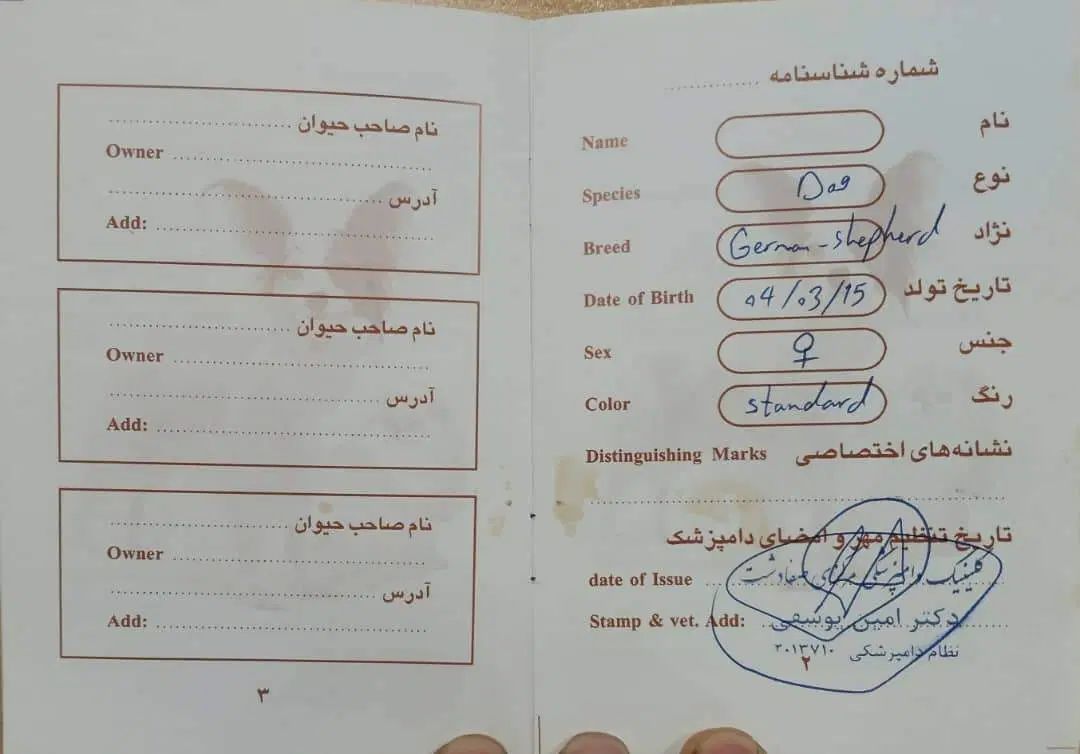 شماره شناسنامه ..............
Name نام
Species Dog نوع
Breed German-shepherd نژاد
Date of Birth 04/03/15 تاریخ تولد
Sex ♀ جنس
Color standard رنگ
Distinguishing Marks نشانه‌های اختصاصی
تاریخ تنظیم مهر و امضای دامپزشک
date of Issue کلینیک دامپزشکی
Stamp & vet. Add: دکتر امین یوسفی
نظام دامپزشکی ۲۰۱۳۷۱۰
۲
نام صاحب حیوان
Owner
آدرس
Add:
نام صاحب حیوان
Owner
آدرس
Add:
نام صاحب حیوان
Owner
آدرس
Add:
۳